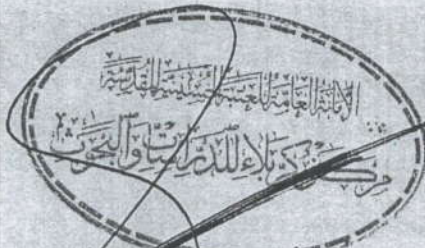 الأمانة العامة للعتبة الحسينية المقدسة
مركز كربلاء للدراسات والبحوث